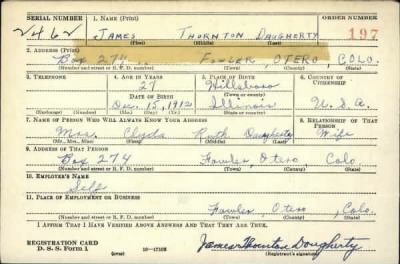 SERIAL NUMBER 1. NAME (Print) ORDER NUMBER
2462 JAMES THORNTON DAUGHERTY 197
(First) (Middle) (Last)
2. ADDRESS (Print)
Box 274 FOWLER, OTERO, COLO.
(Number and street or R. F. D. number) (Town) (County) (State)
3. TELEPHONE 4. AGE IN YEARS 5. PLACE OF BIRTH 6. COUNTRY OF CITIZENSHIP
27 Hillsboro
DATE OF BIRTH (Town or county)
Dec. 15, 1912 Illinois U. S. A.
(Exchange) (Number) (Mo.) (Day) (Yr.) (State or country)
7. NAME OF PERSON WHO WILL ALWAYS KNOW YOUR ADDRESS 8. RELATIONSHIP OF THAT PERSON
Mrs. Clyda Ruth Daugherty Wife
(Mr., Mrs., Miss) (First) (Middle) (Last)
9. ADDRESS OF THAT PERSON
Box 274 Fowler, Otero Colo
(Number and street or R. F. D. number) (Town) (County) (State)
10. EMPLOYER'S NAME
Self
11. PLACE OF EMPLOYMENT OR BUSINESS
Fowler, Otero, Colo.
(Number and street or R. F. D. number) (Town) (County) (State)
I AFFIRM THAT I HAVE VERIFIED ABOVE ANSWERS AND THAT THEY ARE TRUE.
REGISTRATION CARD
D. S. S. Form 1 (over) James Thornton Daugherty
(Registrant's signature)